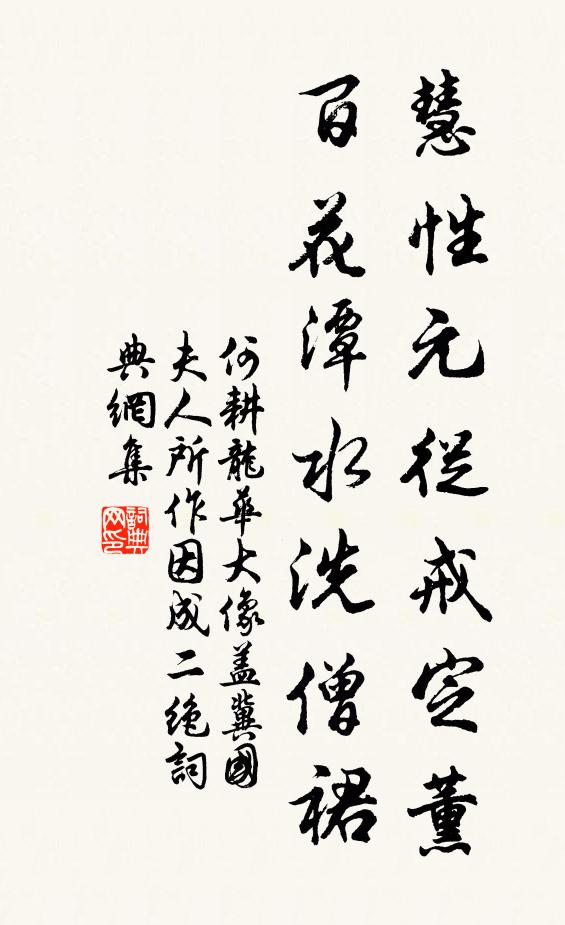 慧性元從戒定薰
百花潭水洗僧裙
何耕龍華大像蓋冀國
夫人所作因成二絶詞
典網集
詞典网印